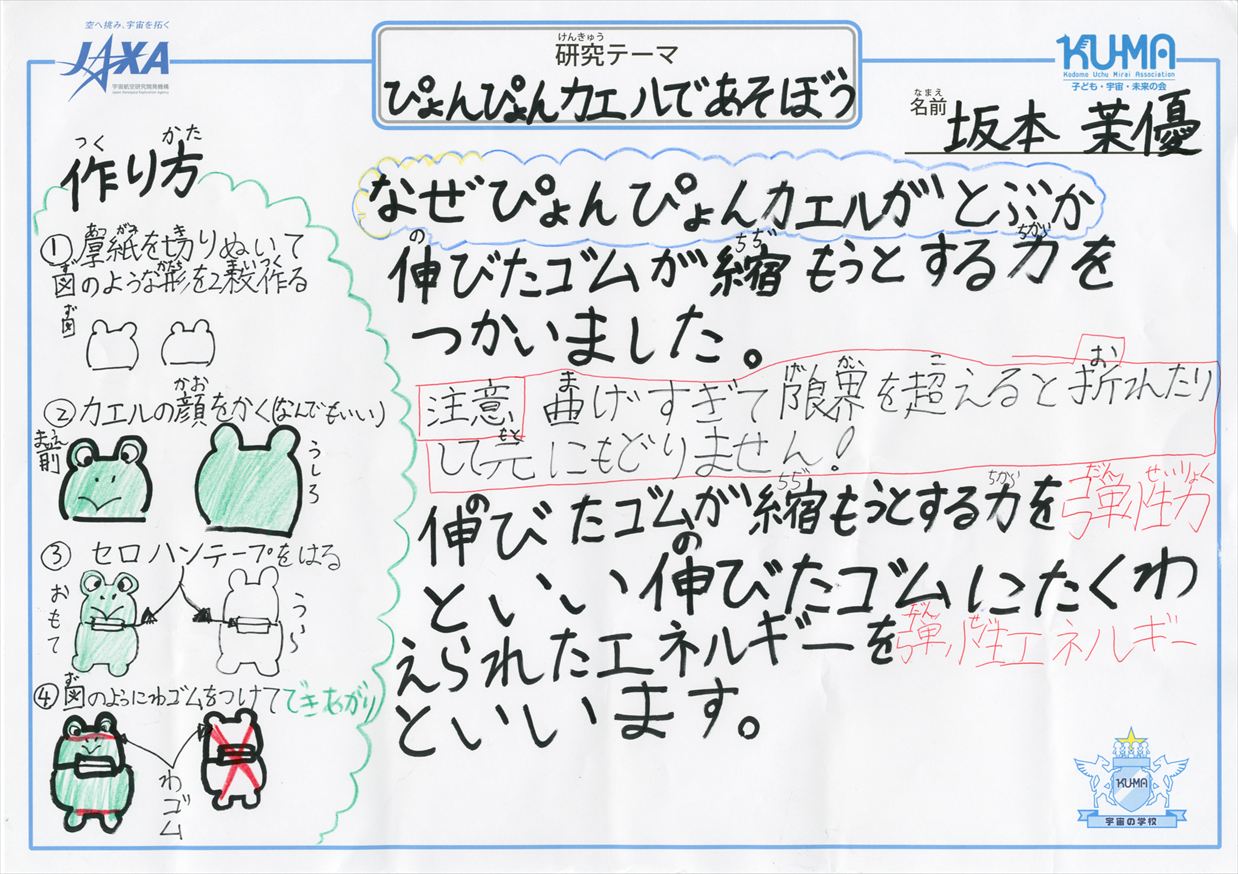 空へ挑み、宇宙を拓く
JAXA
宇宙航空研究開発機構
Japan Aerospace Exploration Agency
けんきゅう
研究テーマ
ぴょんぴょんカエルであそぼう
KU-MA
Kodomo Uchu Mirai Association
子ども・宇宙・未来の会
なまえ
名前 坂本 茉優
つく かた
作り方
あつ がみ き
①厚紙を切りぬいて
ず かたち つく
図のような形を2枚作る
ず
図
かお
②カエルの顔をかく(なんでもいい)
まえ
前
うしろ
③ セロハンテープをはる
おもて
うしろ
ず
④図のようにわゴムをつけてできあがり
わゴム
なぜぴょんぴょんカエルがとぶか
の ちぢ ちから
伸びたゴムが縮もうとする力を
つかいました。
ま げん かい こ お
注意 曲げすぎて限界を超えると折れたり
もと
して元にもどりません!
の ちぢ ちから だん せい りょく
伸びたゴムが縮もうとする力を弾性力
の
といい伸びたゴムにたくわ
だん せい
えられたエネルギーを弾性エネルギー
といいます。
KU-MA
宇宙の学校